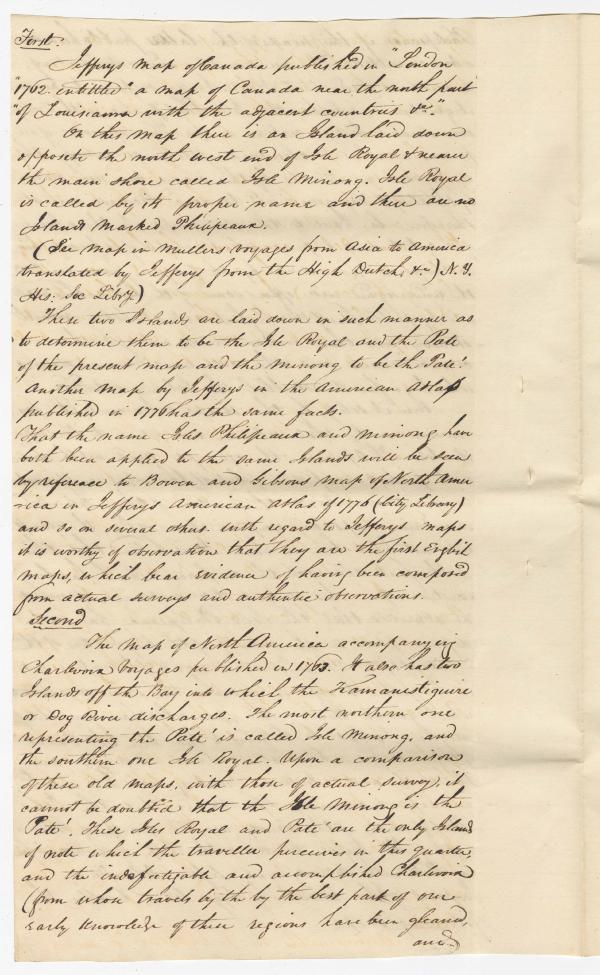 First.
Jefferys map of Canada published in "London
"1762. intitled "a map of Canada near the north part
"of Louisiana with the adjacent countries &c."
On this map there is an Island laid down
opposite the north west end of Isle Royal & nearer
the main shore called Isle Minong. Isle Royal
is called by its proper name and there are no
Islands marked Philipeaux.
(See map in Mullers voyages from Asia to America
translated by Jefferys from the High Dutch, &c) N.Y.
His: Soc Libry)
These two Islands are laid down in such manner as
to determine them to be the Isle Royal and the Pate
of the present map and the minong to be the Pate'.
Another map by Jefferys in the American Atlas
published in 1776 has the same facts.
That the name Isles Philipeaux and minong have
both been applied to the same Islands will be seen
by reference to Bowen and Gibsons map of North Ame
rica in Jefferys American Atlas of 1776 (City Library)
and so on several others. with regard to Jefferys maps
it is worthy of observation that they are the first English
maps, which bear evidence of having been composed
from actual surveys and authentic observations.
Second
The map of North America accompanying
Charlevoix Voyages published in 1763. It also has two
Islands off the Bay into which the Kamanestiguire
or Dog River discharges. The most northern one
representing the Pate' is called Isle Minong, and
the southern one Isle Royal. Upon a comparison
of these old maps, with those of actual survey, it
cannot be doubted that the Isle Minong is the
Pate'. These Isles Royal and Pate' are the only Islands
of note which the traveller perceives in this quarter,
and the indefatigable and accomplished Charlevoix
(from whose travels by the by the best part of our
early knowledge of these regions have been gleaned,
and)